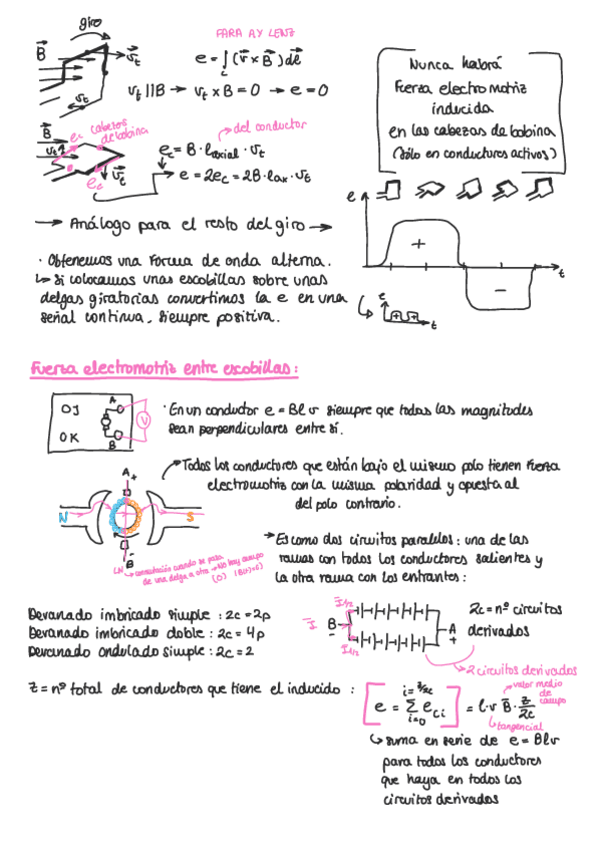 giro
B
v_t
v_t
FARADAY LENZ
e = ∫_c (v x B) dl
v_t || B → v_t x B = 0 → e = 0
Nunca habrá
Fuerza electromotriz
inducida
en las cabezas de bobina
(sólo en conductores activos)
B
v_t
e_c
cabezas
de bobina
e_c
v_t
del conductor
e_c = B · l_axial · v_t
e = 2e_c = 2B · l_ax · v_t
→ Análogo para el resto del giro →
e
+
-
t
· Obtenemos una forma de onda alterna.
↳ Si colocamos unas escobillas sobre unas
delgas giratorias convertimos la e en una
señal continua, siempre positiva.
e
t
Fuerza electromotriz entre escobillas:
OJ
OK
A
B
V
· En un conductor e = Blv siempre que todas las magnitudes
sean perpendiculares entre sí.
Todos los conductores que están bajo el mismo polo tienen fuerza
electromotriz con la misma polaridad y opuesta al
del polo contrario.
A
+
N
S
-
B
LN
conmutación cuando se pasa
de una delga a otra → No hay campo
(0) (B(t)=0)
→ Es como dos circuitos paralelos: una de las
ramas con todos los conductores salientes y
la otra rama con los entrantes:
Devanado imbricado simple : 2c = 2p
Devanado imbricado doble : 2c = 4p
Devanado ondulado simple : 2c = 2
I/2
I
B
-
I/2
A
+
2c = nº circuitos
derivados
→ 2 circuitos derivados
Z = nº total de conductores que tiene el inducido :
[ e = Σ_{i=0}^{i=z/2c} e_ci ] = l·v B · z/2c
valor medio
de
campo
tangencial
↳ suma en serie de e = Blv
para todos los conductores
que haya en todos los
circuitos derivados